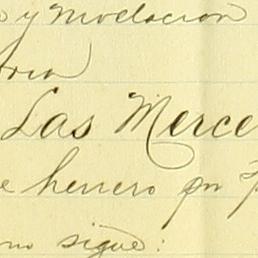 y nivelacion
Las Merce
e herrero por
mo sigue: